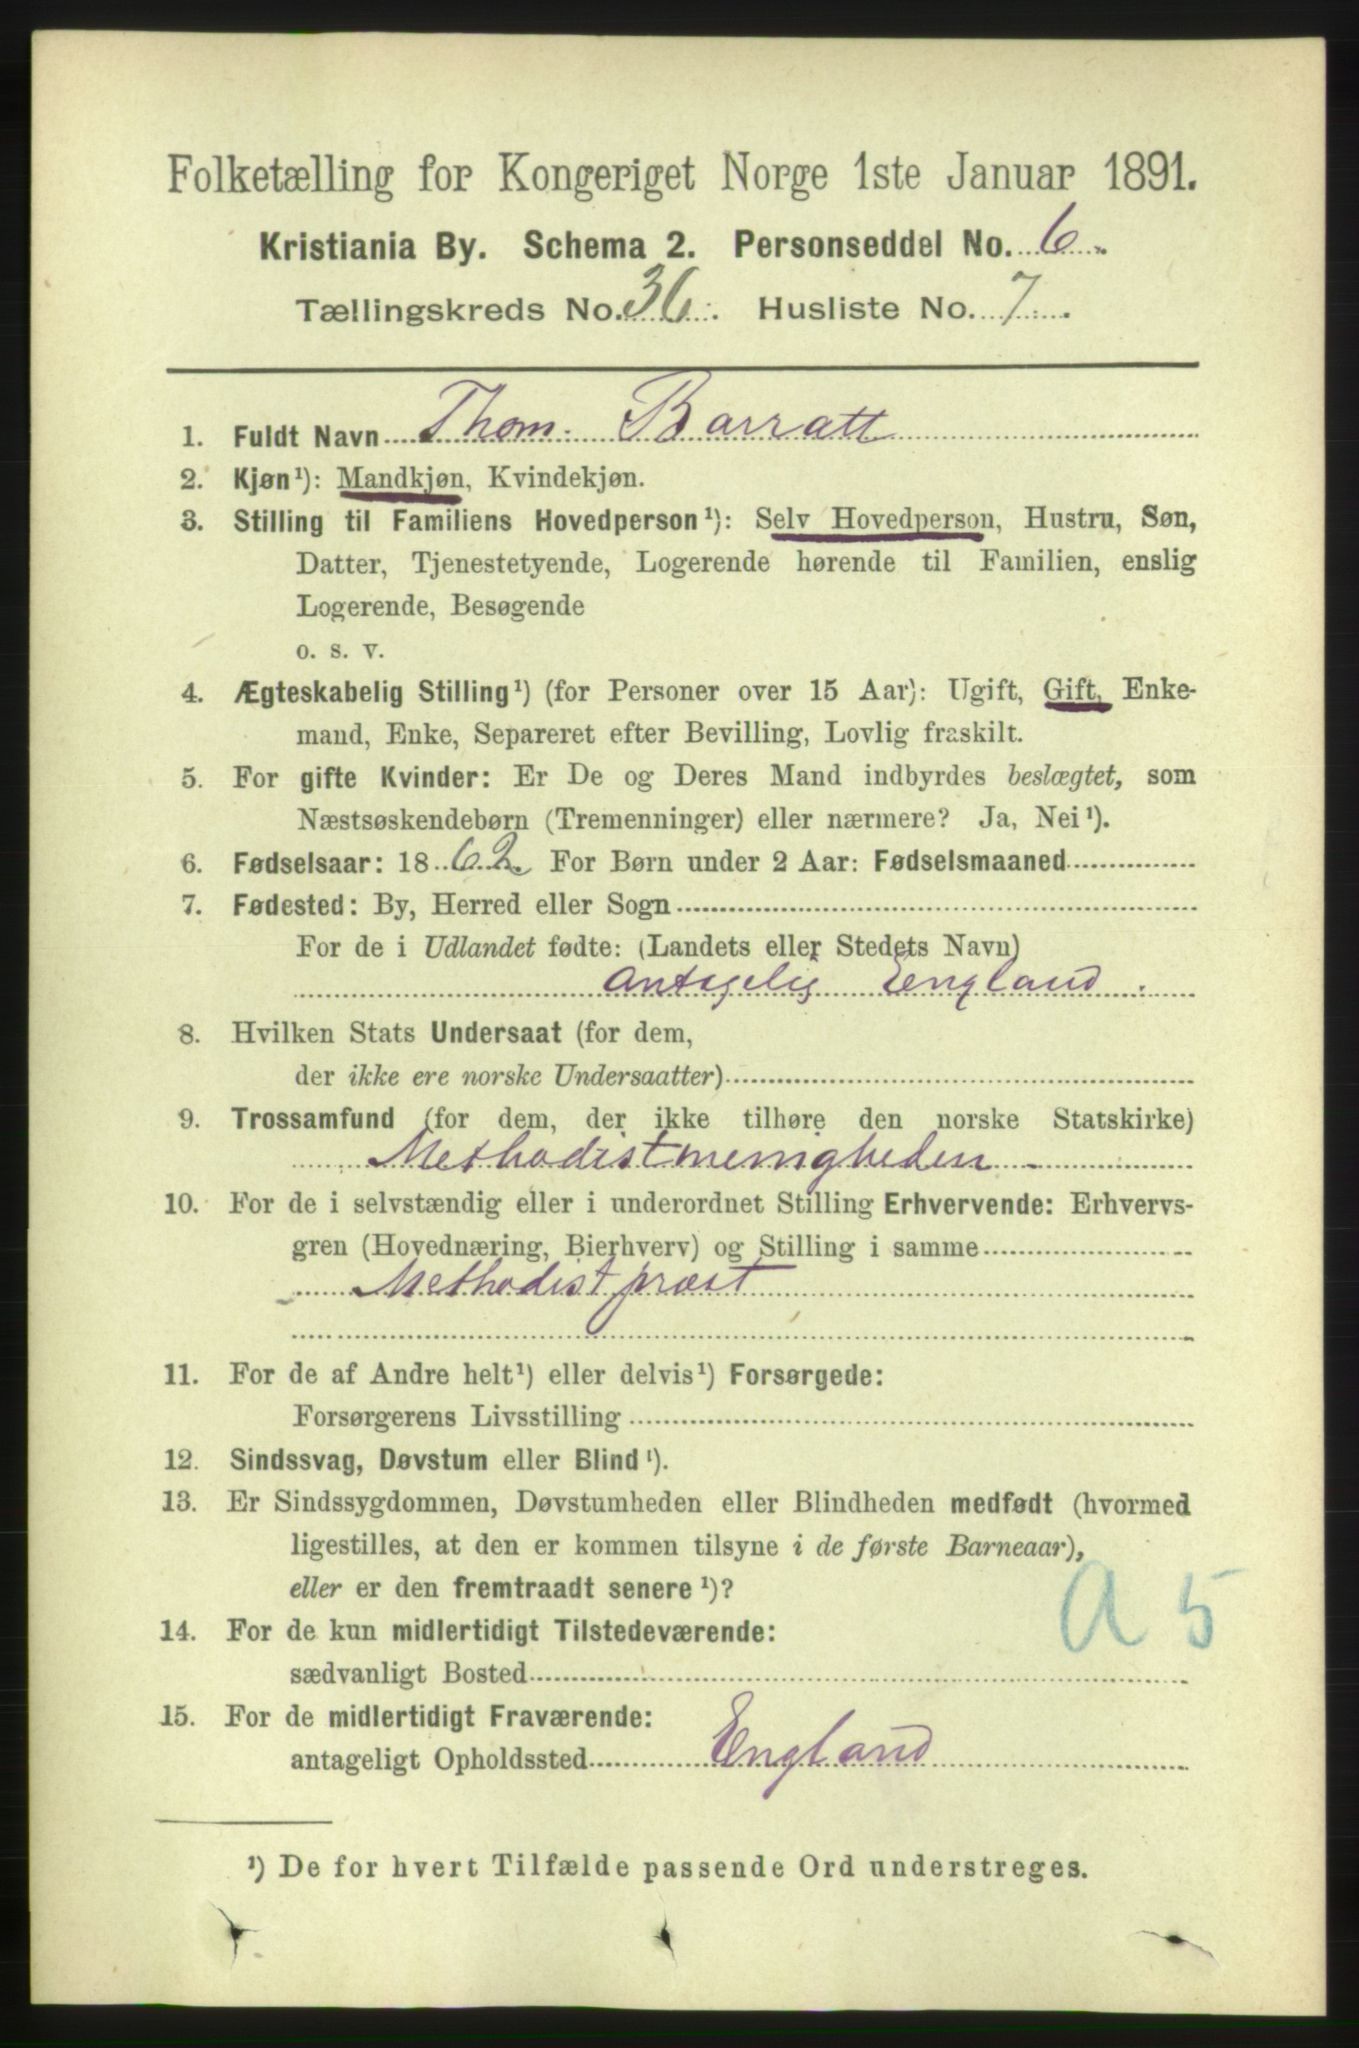 Folketælling for Kongeriget Norge 1ste Januar 1891.
Kristiania By. Schema 2. Personseddel No. 6.
Tællingskreds No. 36. Husliste No. 7.
1. Fuldt Navn Thom. Barratt
2. Kjøn¹): Mandkjøn, Kvindekjøn.
3. Stilling til Familiens Hovedperson¹): Selv Hovedperson, Hustru, Søn,
Datter, Tjenestetyende, Logerende hørende til Familien, enslig
Logerende, Besøgende
o. s. v.
4. Ægteskabelig Stilling¹) (for Personer over 15 Aar): Ugift, Gift, Enke-
mand, Enke, Separeret efter Bevilling, Lovlig fraskilt.
5. For gifte Kvinder: Er De og Deres Mand indbyrdes beslægtet, som
Næstsøskendebørn (Tremenninger) eller nærmere? Ja, Nei¹).
6. Fødselsaar: 1862. For Børn under 2 Aar: Fødselsmaaned
7. Fødested: By, Herred eller Sogn
For de i Udlandet fødte: (Landets eller Stedets Navn)
antagelig England.
8. Hvilken Stats Undersaat (for dem,
der ikke ere norske Undersaatter)
9. Trossamfund (for dem, der ikke tilhøre den norske Statskirke)
Methodistmenigheden
10. For de i selvstændig eller i underordnet Stilling Erhvervende: Erhvervs-
gren (Hovednæring, Bierhverv) og Stilling i samme
Methodistpræst
11. For de af Andre helt¹) eller delvis¹) Forsørgede:
Forsørgerens Livsstilling
12. Sindssvag, Døvstum eller Blind¹).
13. Er Sindssygdommen, Døvstumheden eller Blindheden medfødt (hvormed
ligestilles, at den er kommen tilsyne i de første Barneaar),
eller er den fremtraadt senere¹)?
A 5
14. For de kun midlertidigt Tilstedeværende:
sædvanligt Bosted
15. For de midlertidigt Fraværende:
antageligt Opholdssted England
¹) De for hvert Tilfælde passende Ord understreges.